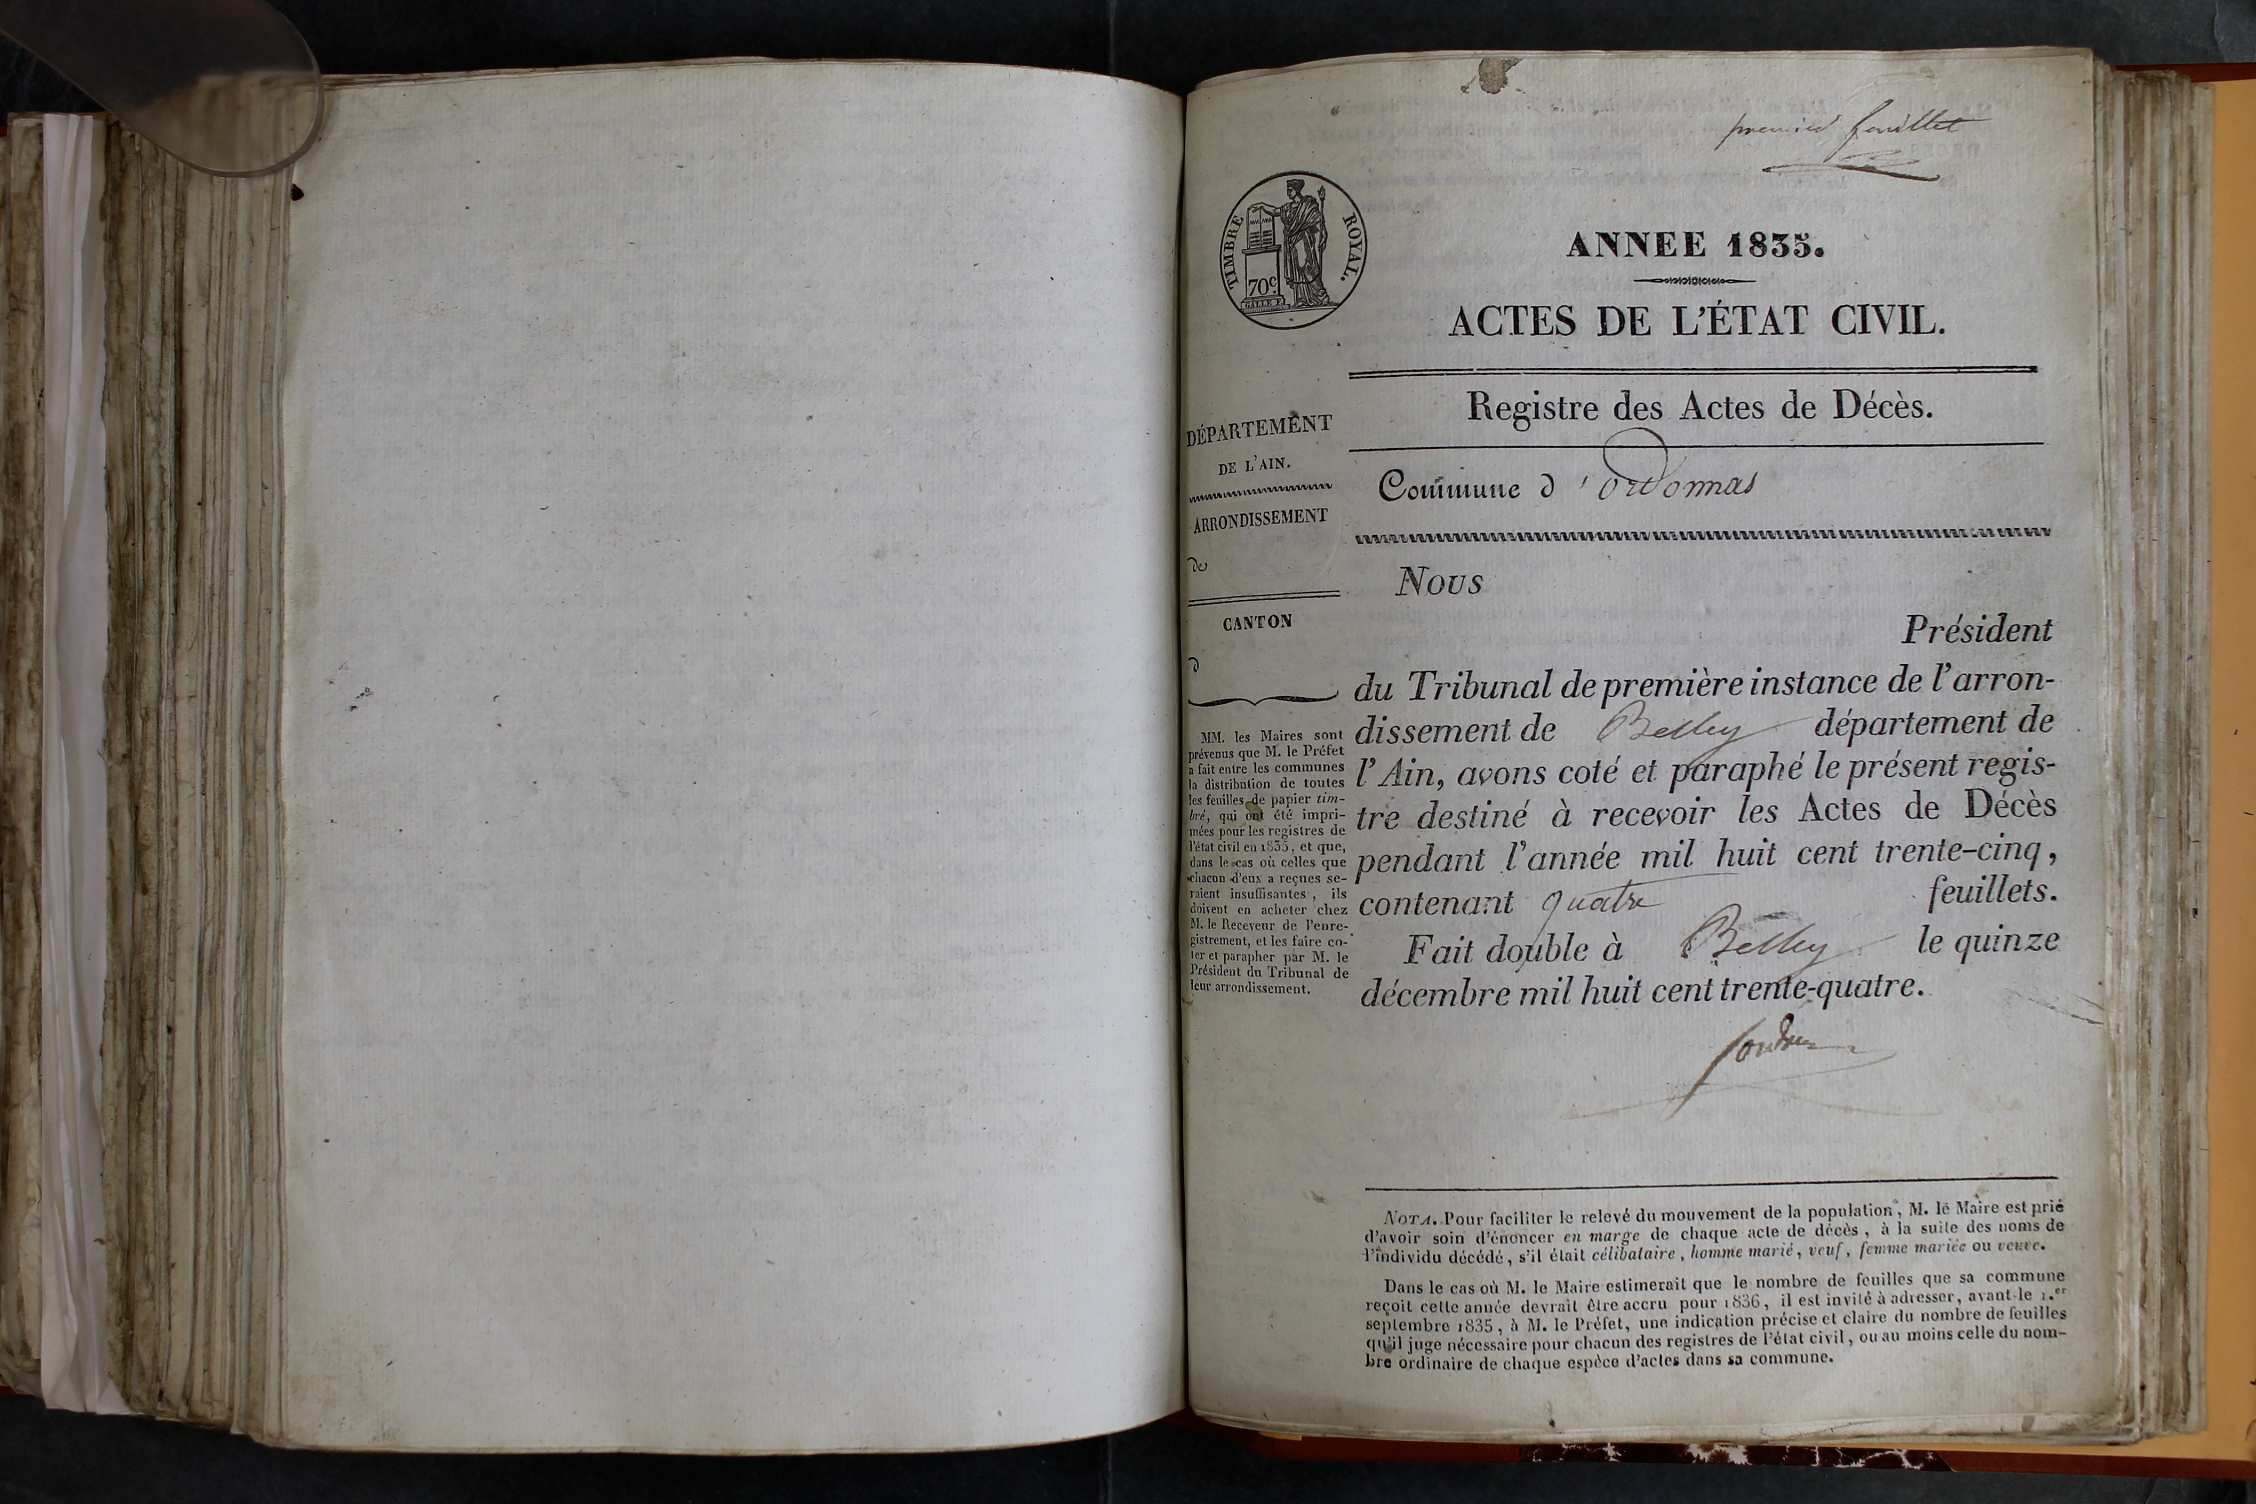 premier feuillet
TIMBRE ROYAL.
70c.
GALLE F.
ANNEE 1835.
ACTES DE L'ÉTAT CIVIL.
Registre des Actes de Décès.
Commune d'ordonnas
DÉPARTEMENT
DE L'AIN.
ARRONDISSEMENT
de
CANTON
d
MM. les Maires sont
prévenus que M. le Préfet
a fait entre les communes
la distribution de toutes
les feuilles de papier tim-
bré, qui ont été impri-
mées pour les registres de
l'état civil en 1835, et que,
dans le cas où celles que
chacun d'eux a reçues se-
raient insuffisantes, ils
doivent en acheter chez
M. le Receveur de l'enre-
gistrement, et les faire co-
ter et parapher par M. le
Président du Tribunal de
leur arrondissement.
Nous
Président
du Tribunal de première instance de l'arron-
dissement de Belley département de
l'Ain, avons coté et paraphé le présent regis-
tre destiné à recevoir les Actes de Décès
pendant l'année mil huit cent trente-cinq,
contenant quatre feuillets.
Fait double à Belley le quinze
décembre mil huit cent trente-quatre.
NOTA. Pour faciliter le relevé du mouvement de la population, M. le Maire est prié
d'avoir soin d'énoncer en marge de chaque acte de décès, à la suite des noms de
l'individu décédé, s'il était célibataire, homme marié, veuf, femme mariée ou veuve.
Dans le cas où M. le Maire estimerait que le nombre de feuilles que sa commune
reçoit cette année devrait être accru pour 1836, il est invité à adresser, avant le 1.er
septembre 1835, à M. le Préfet, une indication précise et claire du nombre de feuilles
qu'il juge nécessaire pour chacun des registres de l'état civil, ou au moins celle du nom-
bre ordinaire de chaque espèce d'actes dans sa commune.